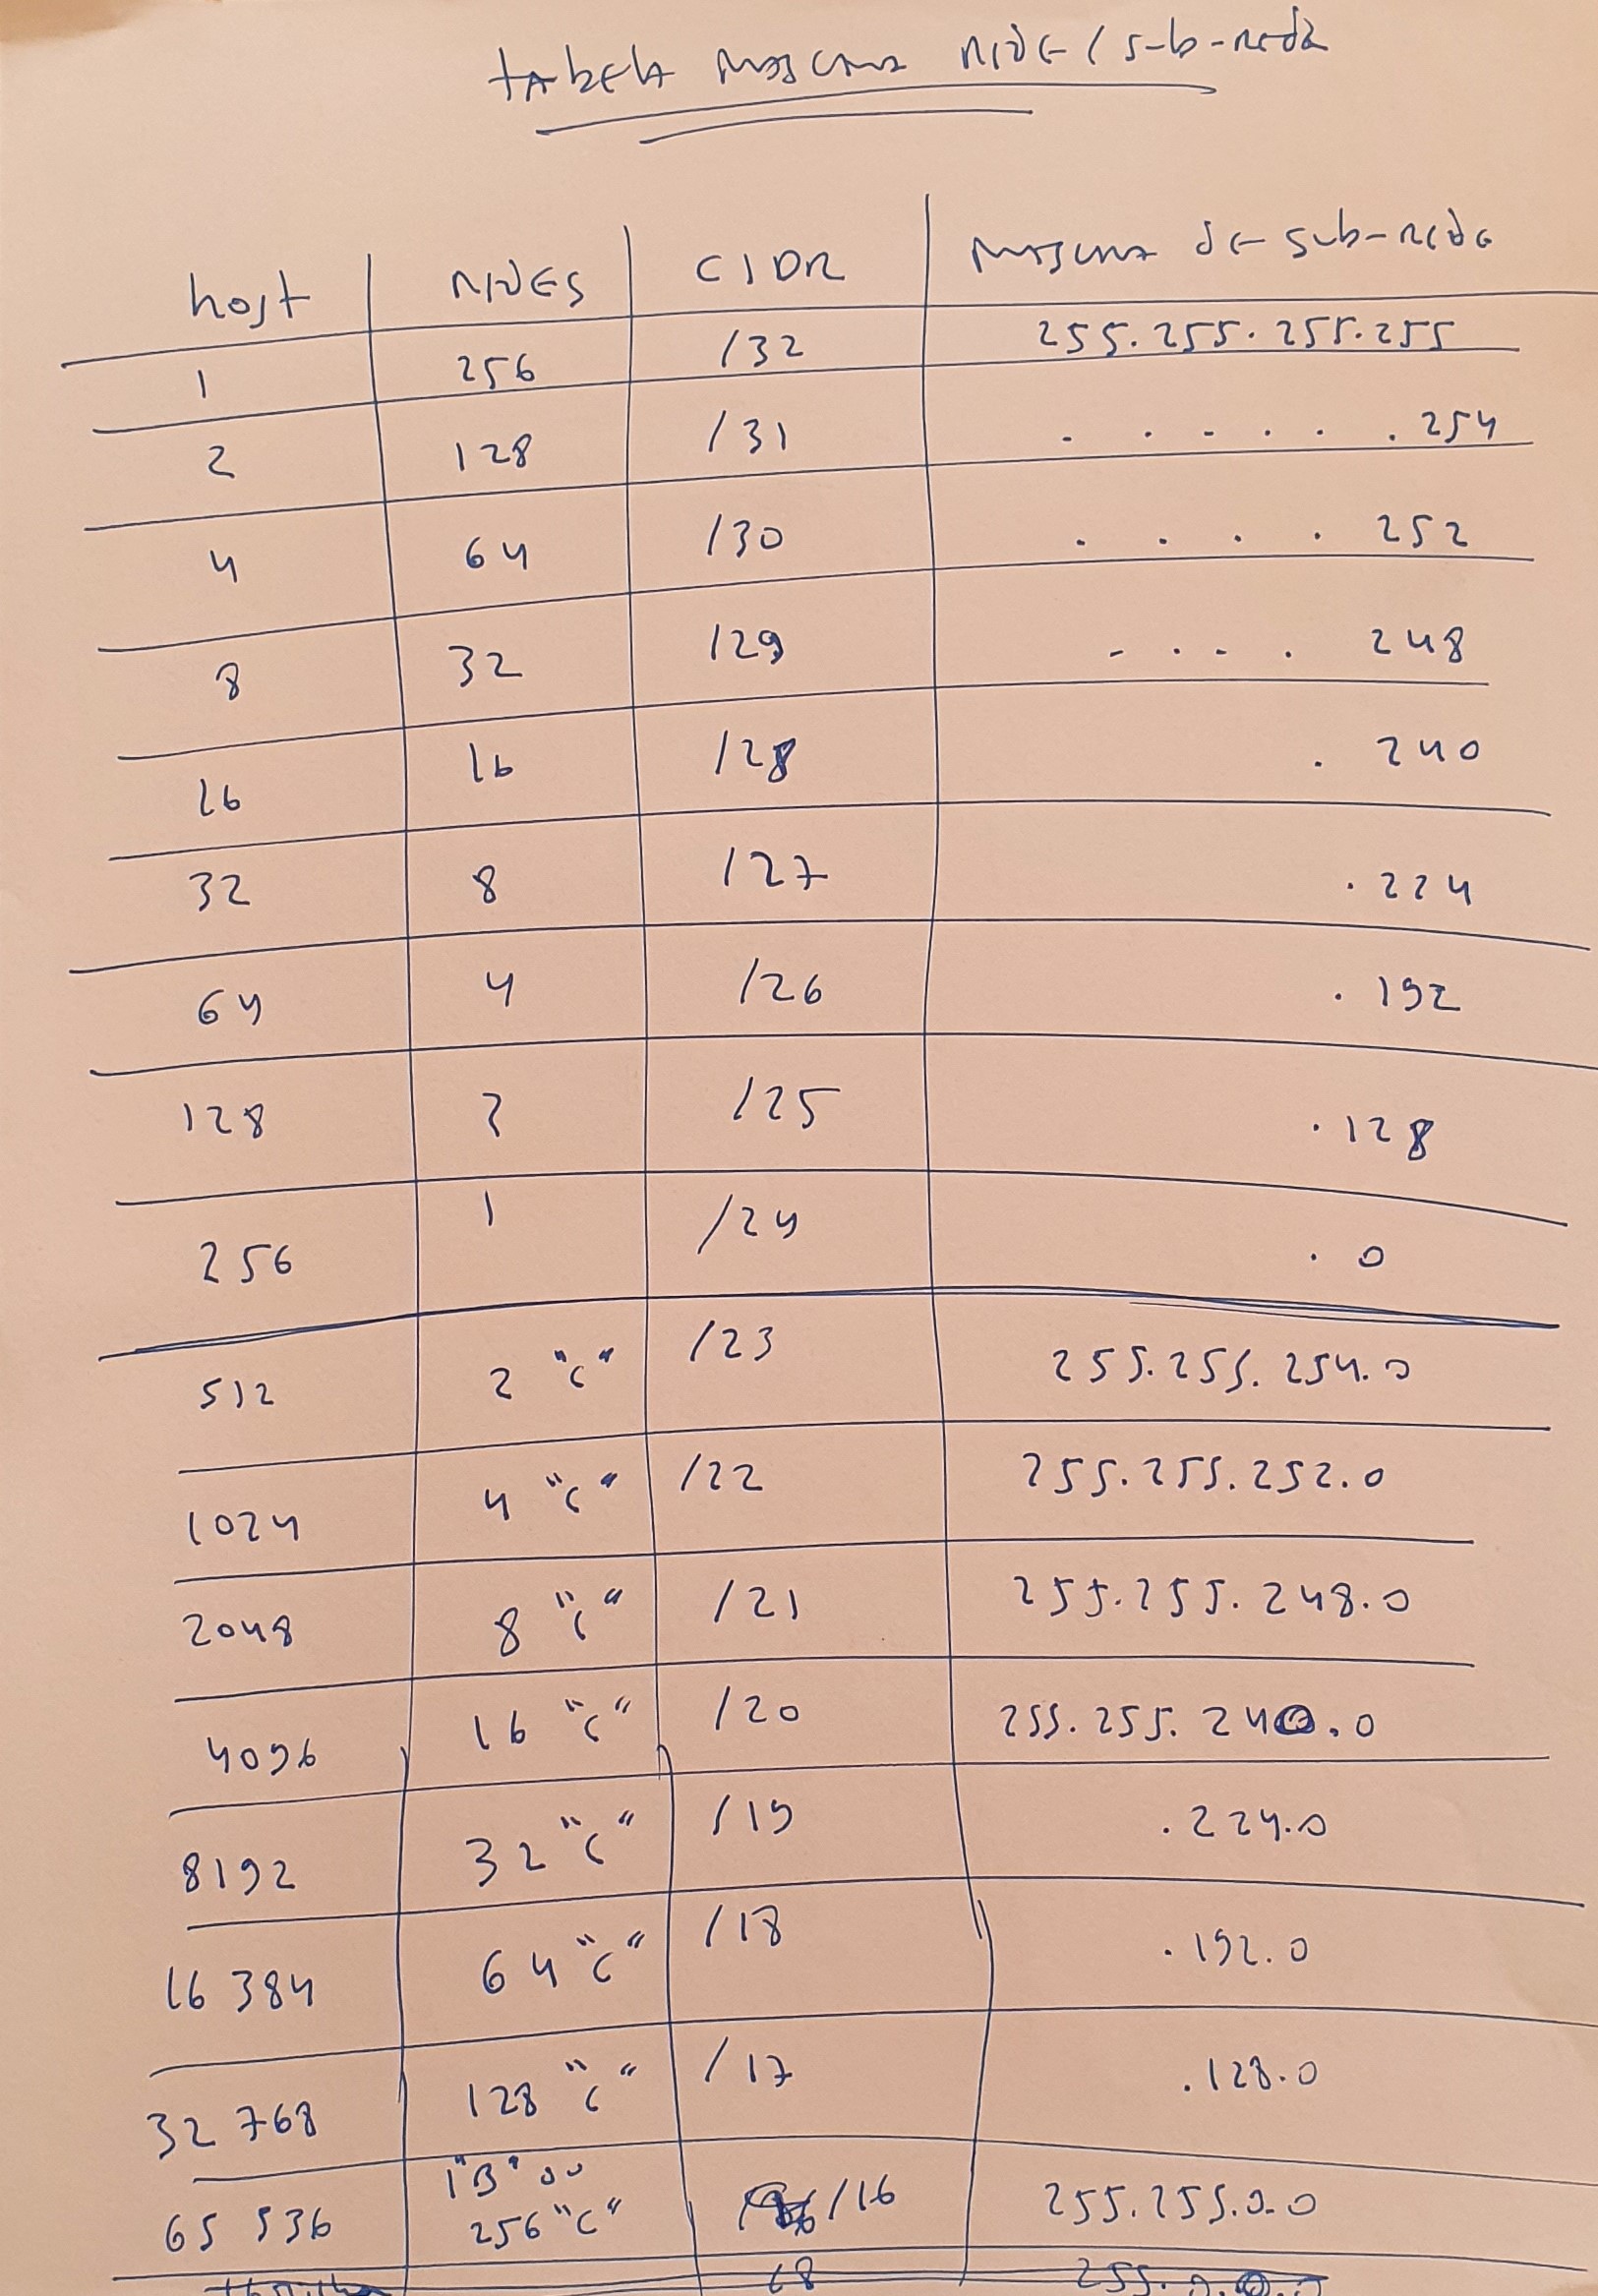 tabela mascara rede / sub-rede
host redes CIDR mascara de sub-rede
1 256 /32 255.255.255.255
2 128 /31 . . . . . . 254
4 64 /30 . . . . 252
8 32 /29 . . . . 248
16 16 /28 . 240
32 8 /27 . 224
64 4 /26 . 192
128 2 /25 . 128
256 1 /24 . 0
512 2 "C" /23 255.255.254.0
1024 4 "C" /22 255.255.252.0
2048 8 "C" /21 255.255.248.0
4096 16 "C" /20 255.255.240.0
8192 32 "C" /19 .224.0
16 384 64 "C" /18 .192.0
32 768 128 "C" /17 .128.0
1 "B" ou
65 536 256 "C" /16 255.255.0.0
/8 255.0.0.0